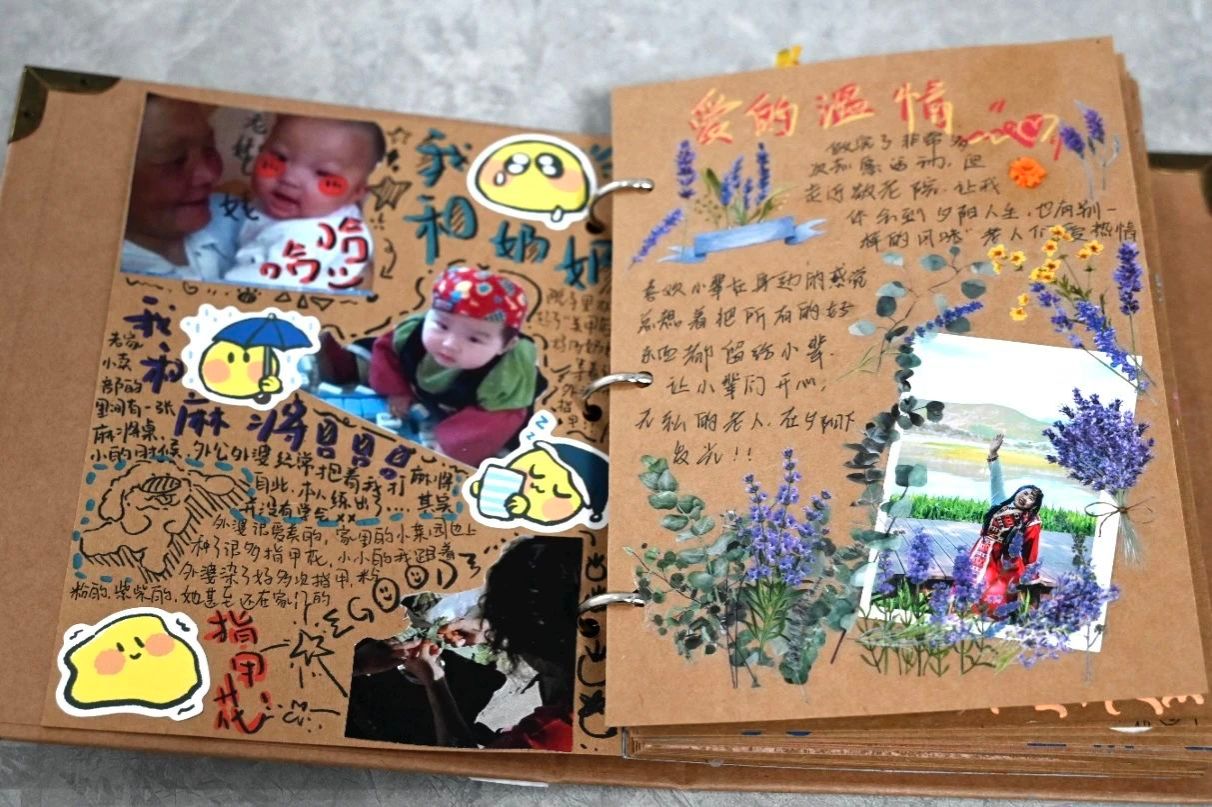 我
和奶奶
哈
哈
我
和
麻将
老家
小卖
部的
里间有一张
麻将桌,
小的时候,外公外婆经常抱着我打麻将
因此,本人练出了....其实
并没有学会xx
外婆很爱美的,家里的小菜园也上
种了很多指甲花,小小的我跟着
外婆染了好多次指甲,粉
粉的,紫紫的,她甚至还在家门的
指
甲
花
爱的温情
做完了非常多
次志愿运动,但
走近敬老院,让我
体会到夕阳人生,也有别一
样的风味"老人们爱热情
喜欢小辈在身边的感觉
总想着把所有的好
东西都留给小辈.
让小辈们开心,
无私的老人,在夕阳下
发光!!